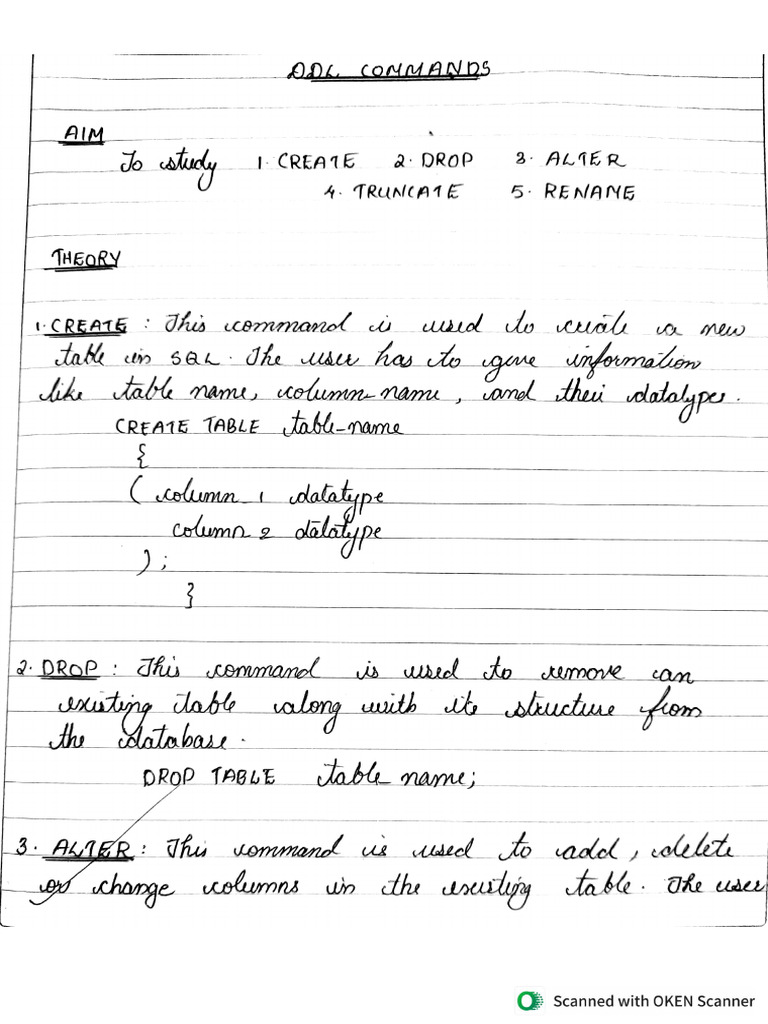 DDL COMMANDS
AIM
To study 1. CREATE 2. DROP 3. ALTER
4. TRUNCATE 5. RENAME
THEORY
1. CREATE : This command is used to create a new
table in SQL. The user has to give information
like table name, column name, and their datatypes.
CREATE TABLE table-name
{
( column 1 datatype
column 2 datatype
);
}
2. DROP : This command is used to remove an
existing table along with its structure from
the database.
DROP TABLE table name;
3. ALTER : This command is used to add, delete
or change columns in the existing table. The user
Scanned with OKEN Scanner